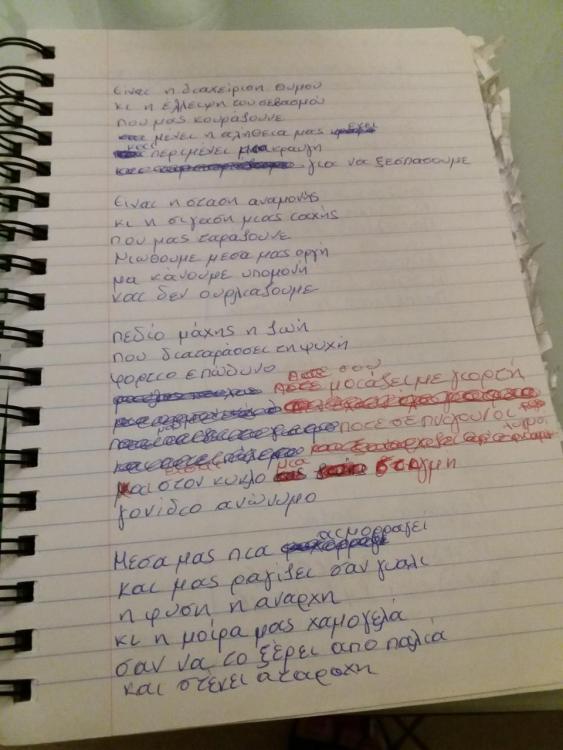 Είναι η διαχείριση θυμού
κι η έλλειψη του σεβασμού
που μας κουράζουνε
μένει η αλήθεια μας εχει
και περιμένει μια κραυγή
για να ξεσπάσουμε
Είναι η στάση αναμονής
κι η σίγαση μιας ταχής
που μας ταράζουνε
Νιώθουμε μεσα μας οργή
μα κάνουμε υπομονή
και δεν ουρλιάζουμε
πεδίο μάχης η ζωή
που διαταράσσει τη ψυχή
φορτίο επώδυνο
Ποτέ μοιάζει με γιορτή
ποτε σε πνίγουν οι
λυγμοί
και στον κυκλο μια στιγμη
γονίδιο ανώνυμο
Μεσα μας πια αιμορραγεί
και μας ραγιζει σαν γυαλι
η φυση η αναρχη
κι η μοίρα μας χαμογελά
σαν να το ξέρει απο παλιά
και στεκει αταραχη